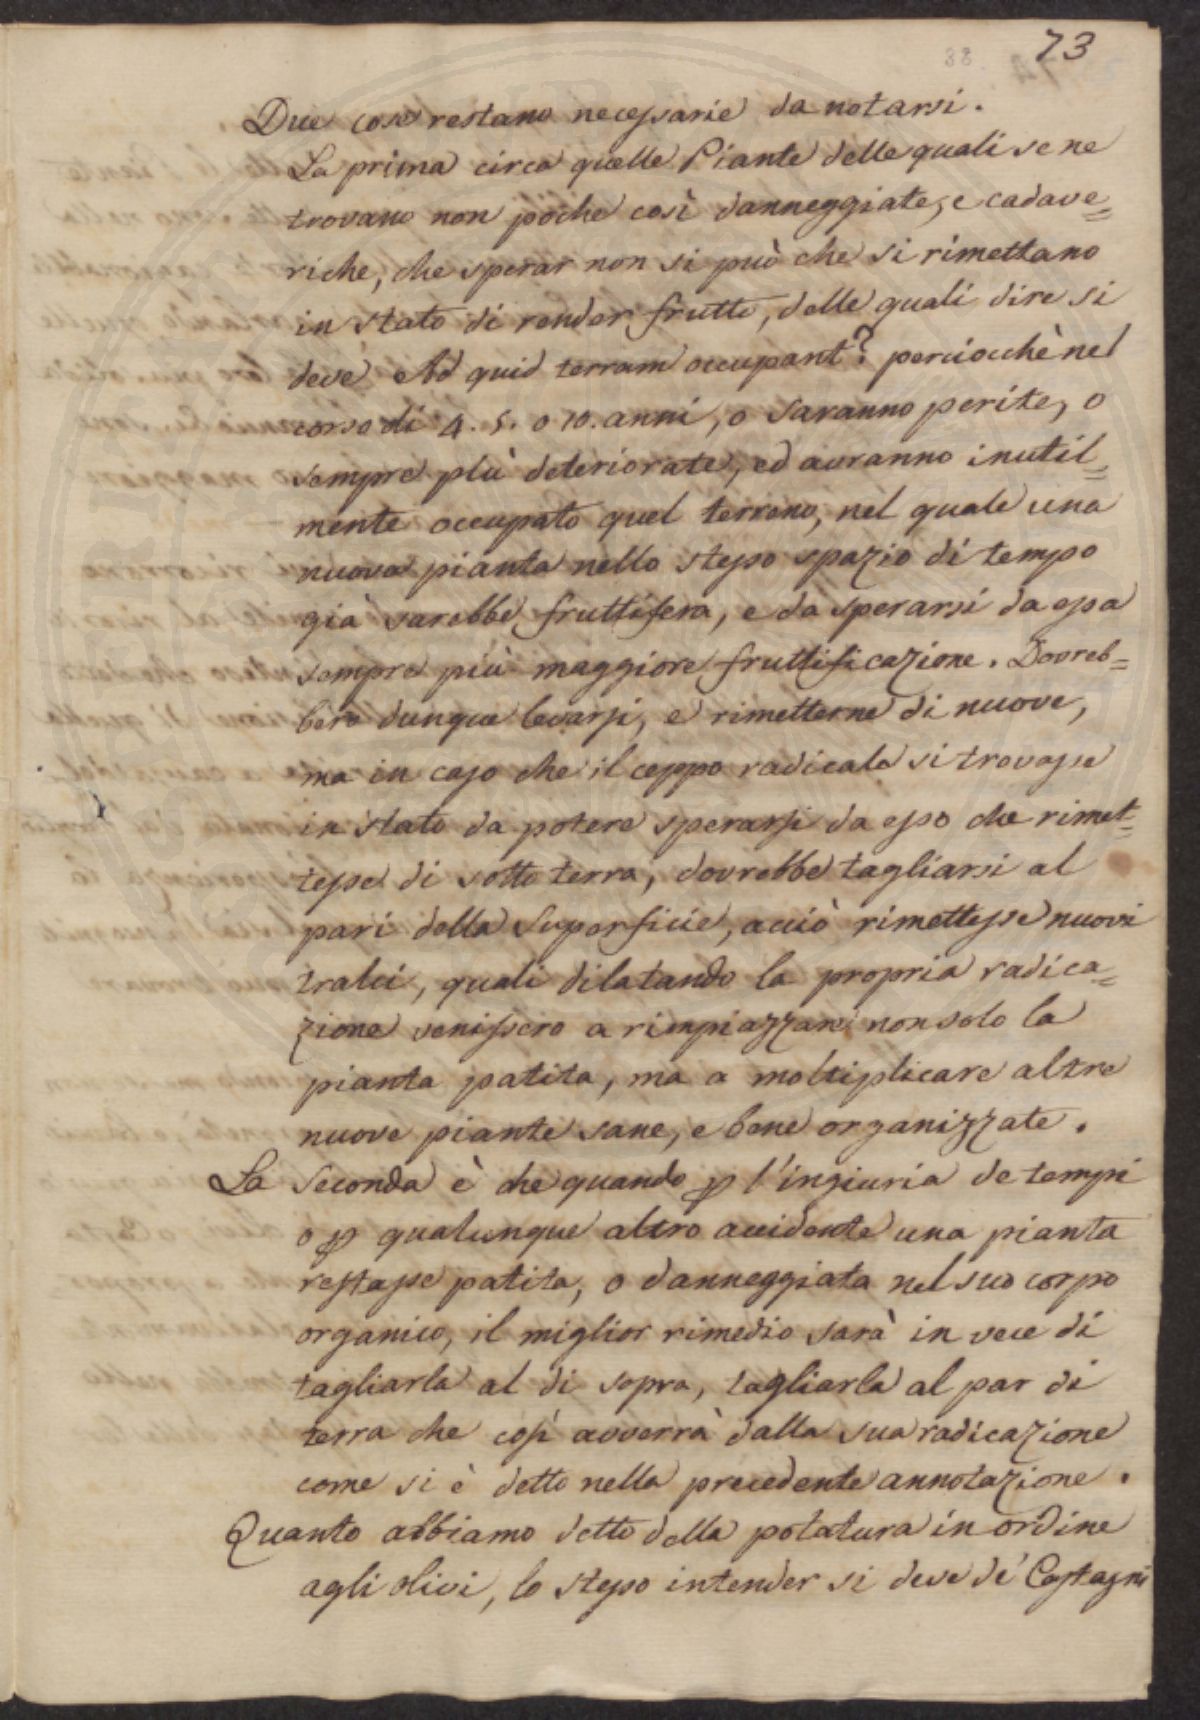 38. 73
Due cose restano necessarie da notarsi.
La prima circa quelle Piante delle quali se ne
trovano non poche così danneggiate, e cadave=
riche, che sperar non si può che si rimettano
in stato di render frutto, delle quali dire si
deve Ad quid terram occupant? perciocchè nel
corso di 4. 5. o 10. anni, o saranno perite, o
sempre più deteriorate, ed avranno inutil=
mente occupato quel terreno, nel quale una
nuova pianta nello stesso spazio di tempo
già sarebbe fruttifera, e da sperarsi da essa
sempre più maggiore fruttificazione. Dovreb=
bero dunque levarsi, e rimetterne di nuove,
ma in caso che il ceppo radicale si trovasse
in stato da potere sperarsi da esso che rimet=
tesse di sotto terra, dovrebbe tagliarsi al
pari della Superficie, acciò rimettesse nuovi
tralci, quali dilatando la propria radica=
zione venissero a rimpiazzare non solo la
pianta patita, ma a moltiplicare altre
nuove piante sane, e bene organizzate.
La Seconda è che quando p l'ingiuria de tempi
o p qualunque altro accidente una pianta
restasse patita, o danneggiata nel suo corpo
organico, il miglior rimedio sarà in vece di
tagliarla al di sopra, tagliarla al par di
terra che così avverrà dalla sua radicazione
come si è detto nella precedente annotazione.
Quanto abbiamo detto della potatura in ordine
agli olivi, lo stesso intender si deve de' Castagni